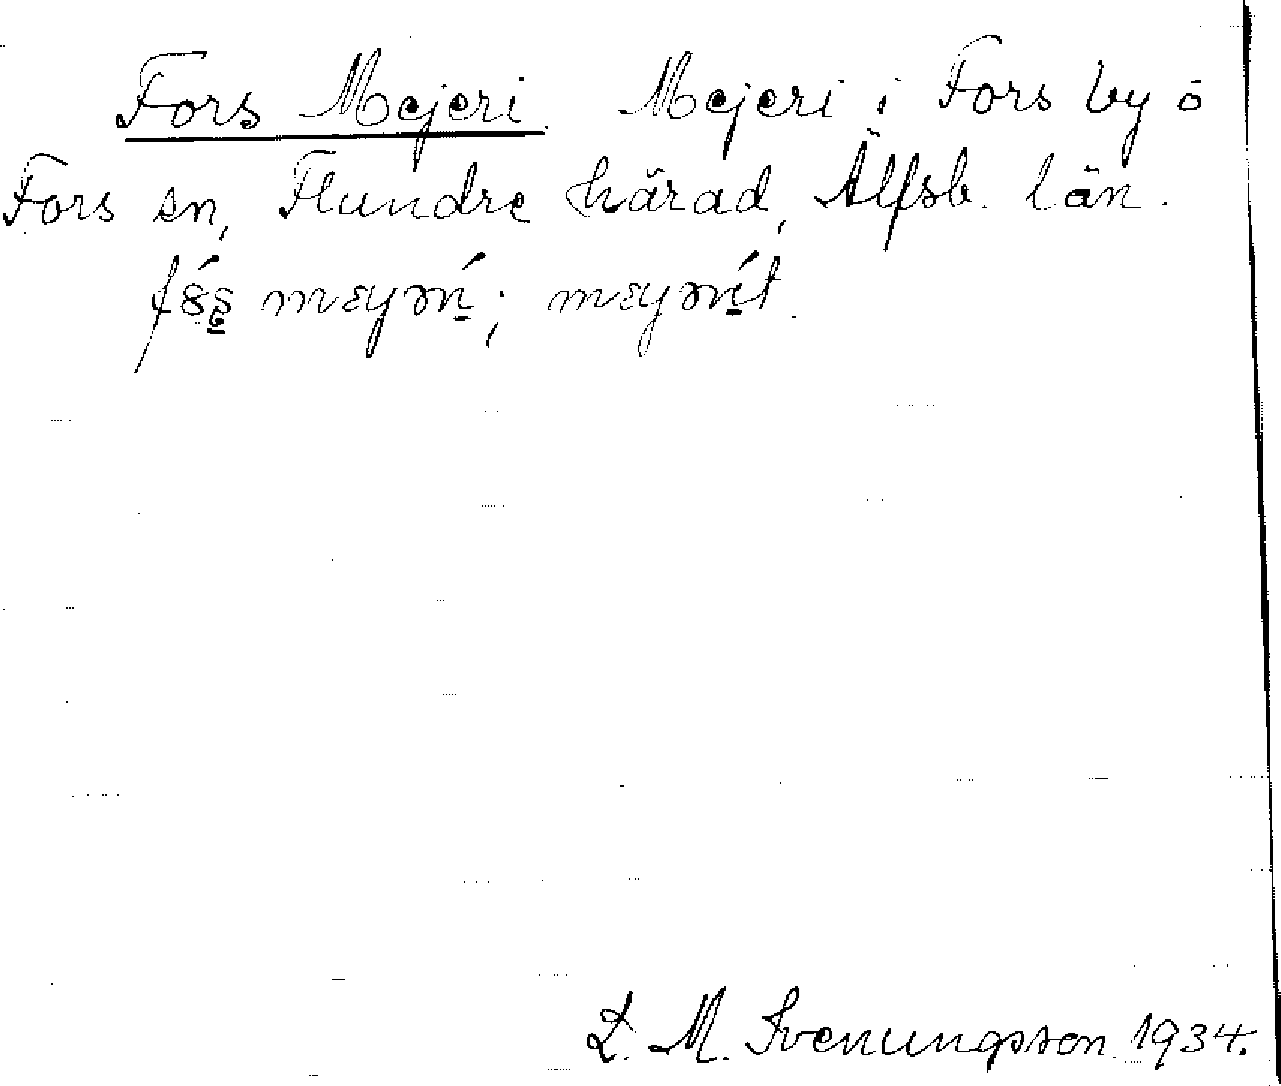 Fors Mejeri. Mejeri i Fors by o
Fors sn, Flundre härad, Älfsb. län.
meyəri; meyərit.
D. M. Svenungsson 1934.